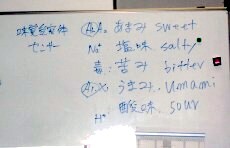 味覚受容体
センサー
甘み sweet
Na⁺ 塩味 salty
毒: 苦み bitter
うまみ. umami
H⁺ 酸味. sour